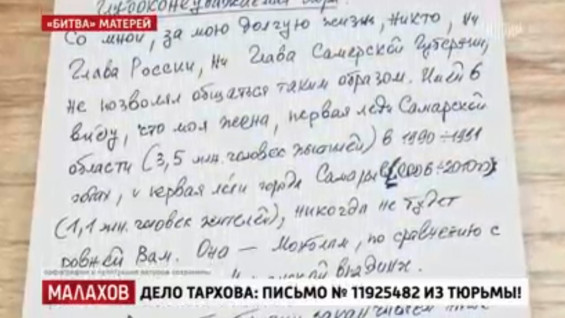 «БИТВА» МАТЕРЕЙ
Со мной, за мою долгую жизнь, никто, ни
Глава России, ни Глава Самарской Губернии,
не позволял общаться таким образом. Имей в
виду, что моя жена, первая леди Самарской
области (3,5 млн. человек жителей) в 1990÷1991
годах, и первая леди города Самары (2006÷2010гг)
(1,1 млн. человек жителей), никогда не будет
ровней Вам. Она — Монблан, по сравнению с
впадиной.
орфография и пунктуация авторов сохранены
МАЛАХОВ
ДЕЛО ТАРХОВА: ПИСЬМО № 11925482 ИЗ ТЮРЬМЫ!